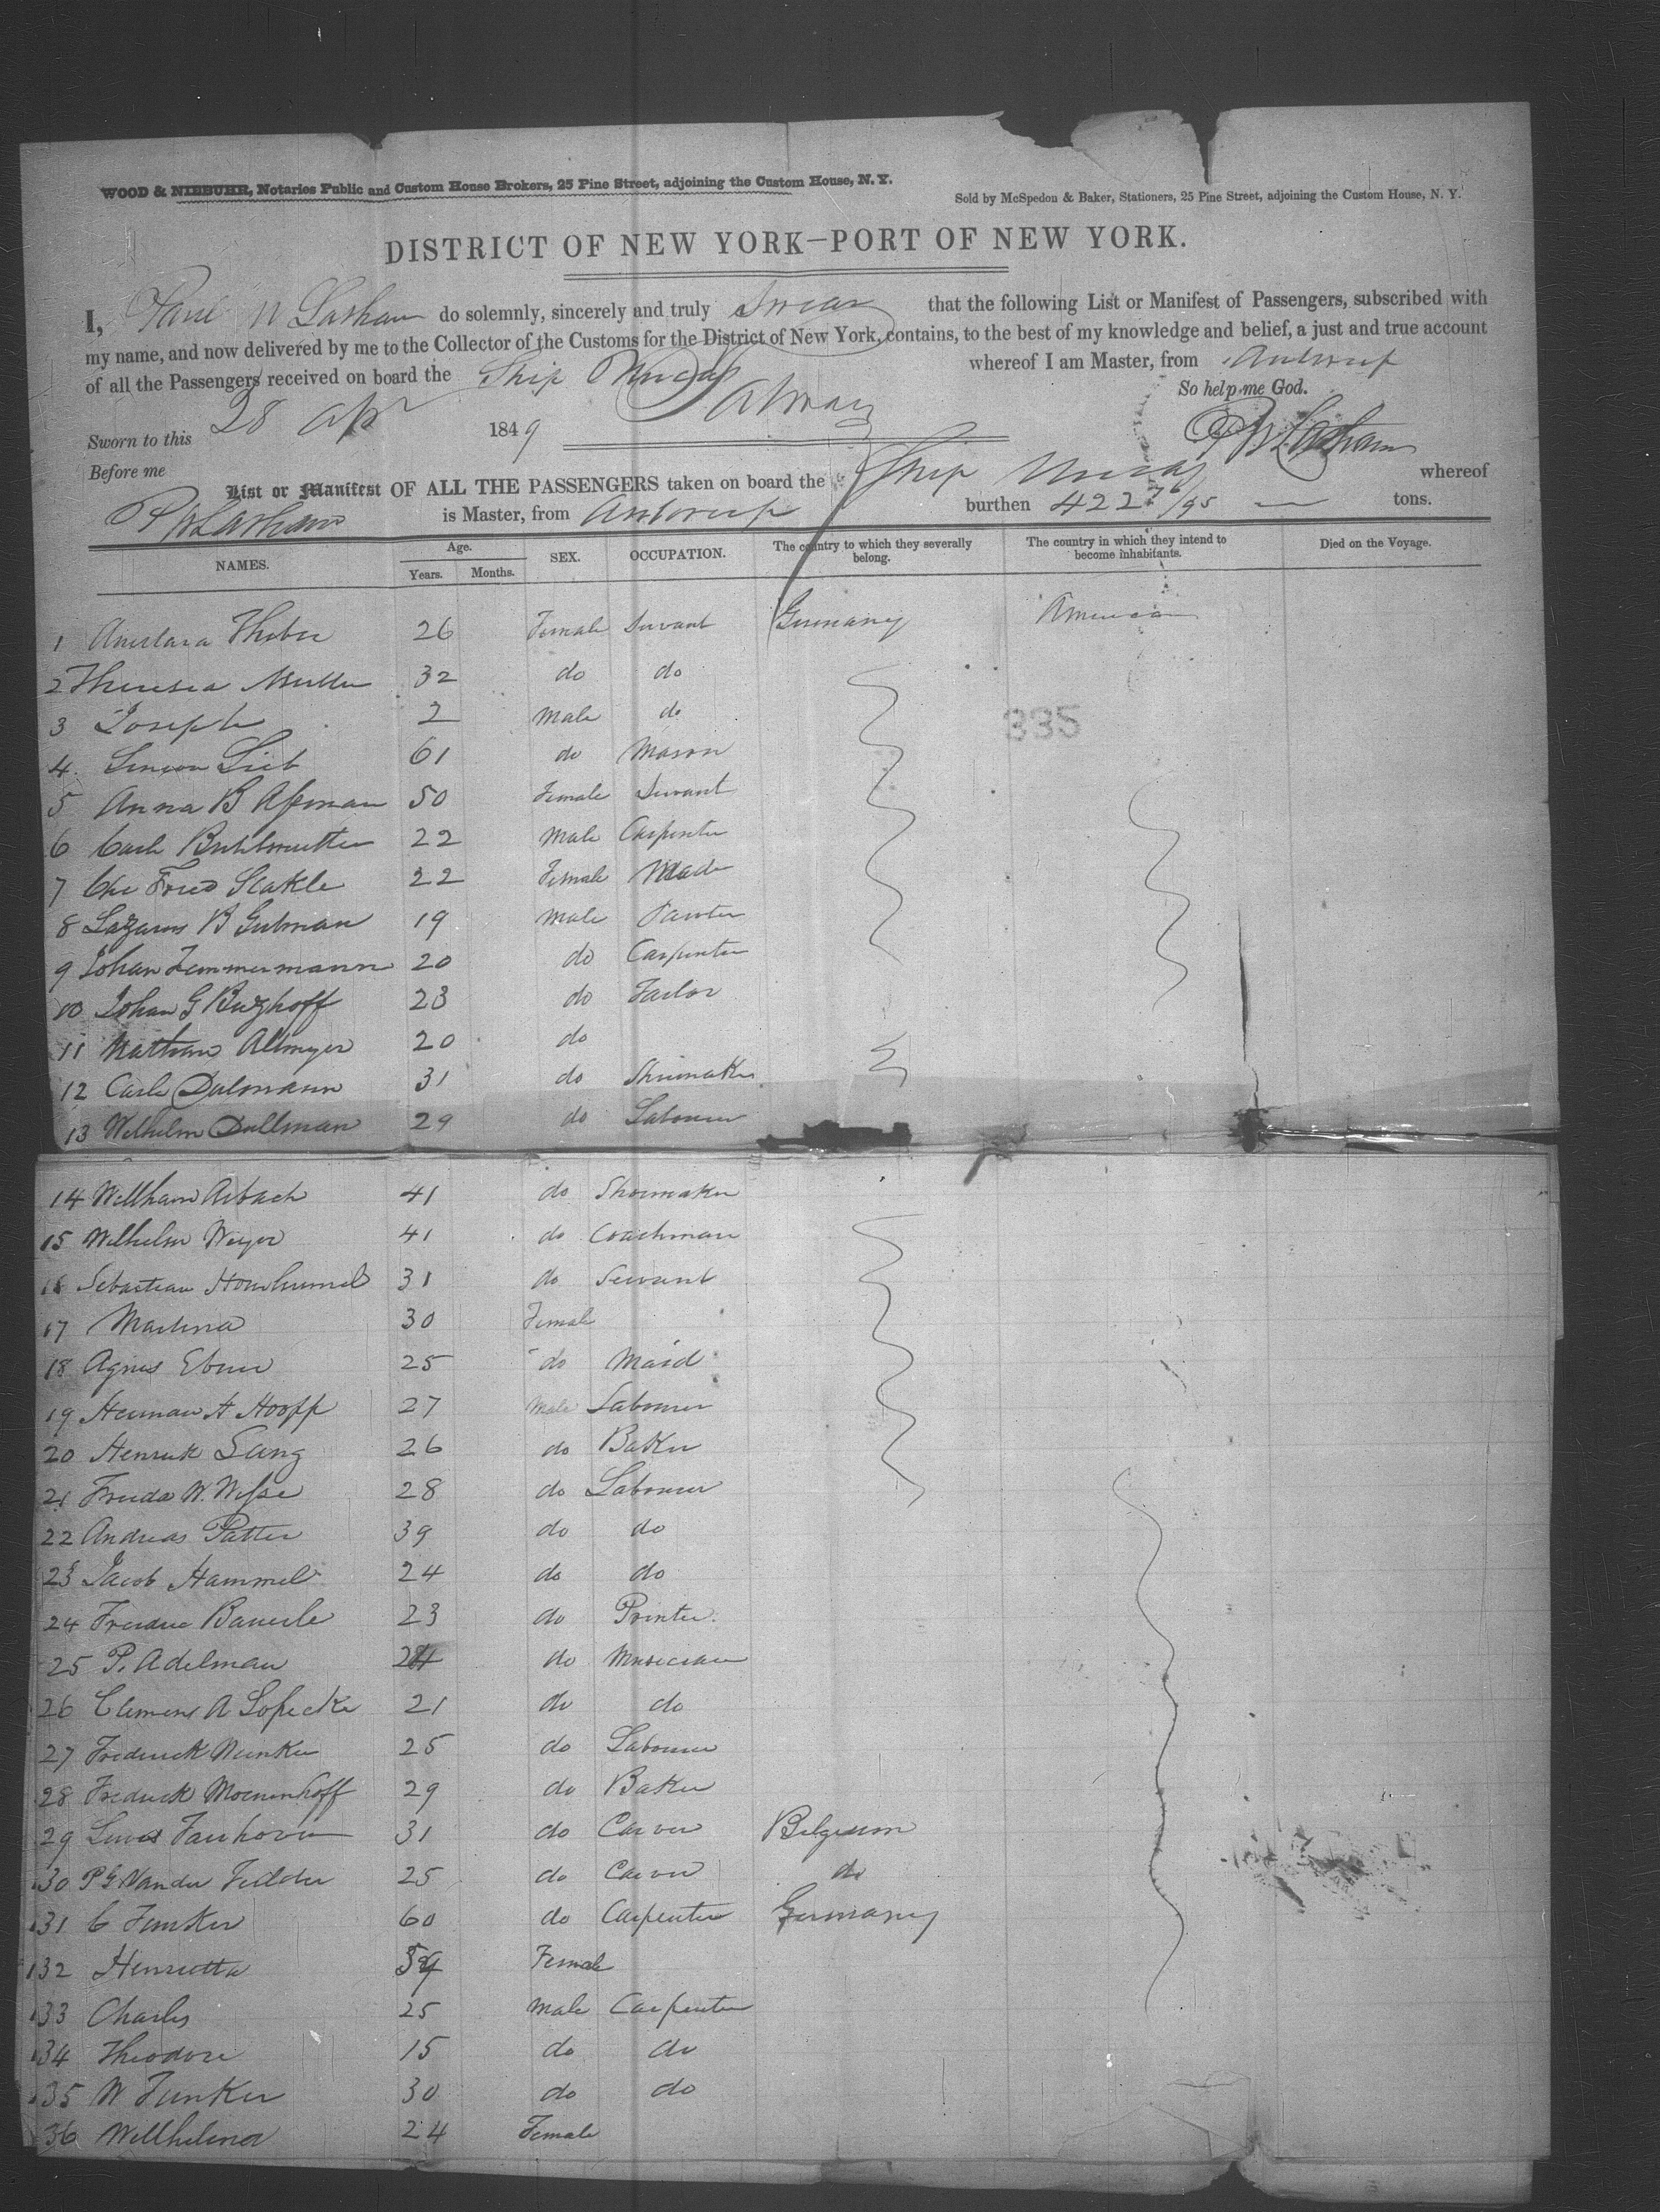 WOOD & NIEBUHR, Notaries Public and Custom House Brokers, 25 Pine Street, adjoining the Custom House, N. Y.
Sold by McSpedon & Baker, Stationers, 25 Pine Street, adjoining the Custom House, N. Y.
DISTRICT OF NEW YORK—PORT OF NEW YORK.
I, Paul W Lasham do solemnly, sincerely and truly Swear that the following List or Manifest of Passengers, subscribed with
my name, and now delivered by me to the Collector of the Customs for the District of New York, contains, to the best of my knowledge and belief, a just and true account
of all the Passengers received on board the Ship whereof I am Master, from Antwerp
So help me God.
Sworn to this 28 Apr 1849
Before me
List or Manifest OF ALL THE PASSENGERS taken on board the Ship whereof
is Master, from Antwerp burthen 422 76/95 tons.
NAMES. Age. Years. Months. SEX. OCCUPATION. The country to which they severally belong. The country in which they intend to become inhabitants. Died on the Voyage.
1 26 Female Servant Germany America
2 Theresia Muller 32 do do
3 Joseph 2 Male do
335
4 Simon Lieb 61 do Mason
5 Anna B Aßman 50 Female Servant
6 Carl 22 Male Carpenter
7 Chr Fried 22 Female
8 Lazarus B Gutman 19 Male
9 Johan Zimmermann 20 do Carpenter
10 Johan G Burghoff 23 do Tailor
11 Nathan Altmyer 20 do
12 Carl Dulmann 31 do Shumaker
13 Wilhelm Dullman 29 do Labourer
14 Willham Arbach 41 do Shoemaker
15 Wilhelm Weyer 41 do Coachman
16 Sebastian 31 do Servant
17 Martina 30 Female
18 Agnes Ebner 25 do Maid
19 Herman H Hoopp 27 Male Labourer
20 Henrick Lang 26 do Baker
21 W. Weße 28 do Labourer
22 Andreas Patter 39 do do
23 Jacob Hammel 24 do do
24 Bauerle 23 do Printer.
25 P. Adelman do Musician
26 Clemens A Lopecke 21 do do
27 Frederick 25 do Labourer
28 Frederick Moenenhoff 29 do Baker
29 Louis Fanhoven 31 do Carver Belgium
30 Vander 25 do Carver do
31 C Funker 60 do Carpenter Germany
32 Henrietta Female
33 Charles 25 Male Carpenter
34 Theodore 15 do do
35 W Funker 30 do do
36 Willhelma 24 Female